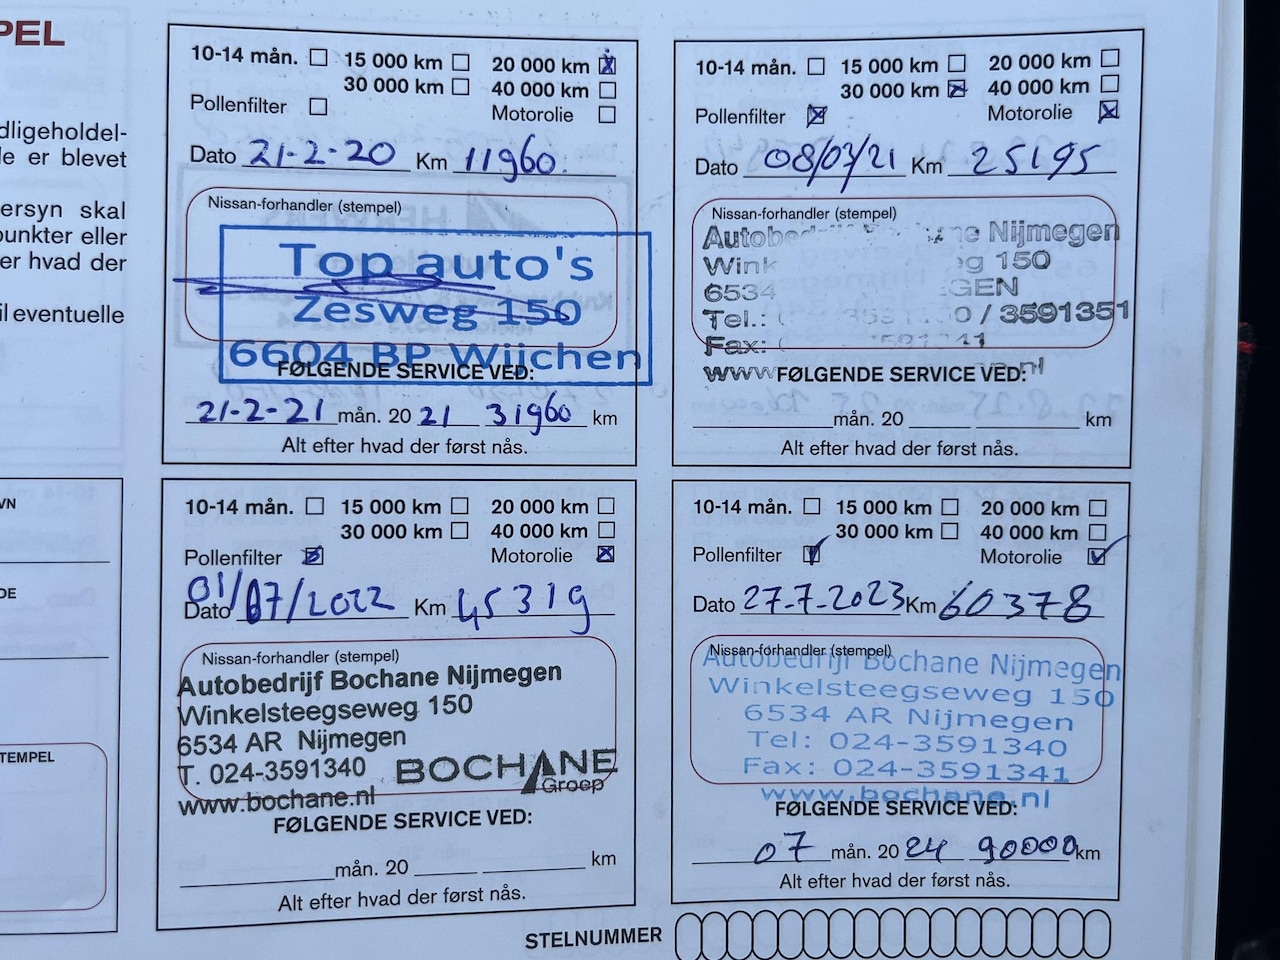 PEL
dligeholdel-
le er blevet
ersyn skal
punkter eller
er hvad der
il eventuelle
VN
DE
TEMPEL
10-14 mån. 15 000 km 20 000 km
30 000 km 40 000 km
Pollenfilter Motorolie
Dato 21-2-20 Km 11960.
Nissan-forhandler (stempel)
Top auto's
Zesweg 150
6604 BP Wijchen
FØLGENDE SERVICE VED:
21-2-21 mån. 20 21 31960 km
Alt efter hvad der først nås.
10-14 mån. 15 000 km 20 000 km
30 000 km 40 000 km
Pollenfilter Motorolie
Dato 08/03/21 Km 25195
Nissan-forhandler (stempel)
Nijmegen
150
6534
Tel.: / 3591351
Fax:
FØLGENDE SERVICE VED:
mån. 20 km
Alt efter hvad der først nås.
10-14 mån. 15 000 km 20 000 km
30 000 km 40 000 km
Pollenfilter Motorolie
Dato 01/07/2022 Km 45319
Nissan-forhandler (stempel)
Autobedrijf Bochane Nijmegen
Winkelsteegseweg 150
6534 AR Nijmegen
T. 024-3591340 BOCHANE
Groep
www.bochane.nl
FØLGENDE SERVICE VED:
mån. 20 km
Alt efter hvad der først nås.
10-14 mån. 15 000 km 20 000 km
30 000 km 40 000 km
Pollenfilter Motorolie
Dato 27-7-2023 Km 60378
Nissan-forhandler (stempel)
Autobedrijf Bochane Nijmegen
Winkelsteegseweg 150
6534 AR Nijmegen
Tel: 024-3591340
Fax: 024-3591341
www.bochane.nl
FØLGENDE SERVICE VED:
07 mån. 20 24 90000 km
Alt efter hvad der først nås.
STELNUMMER